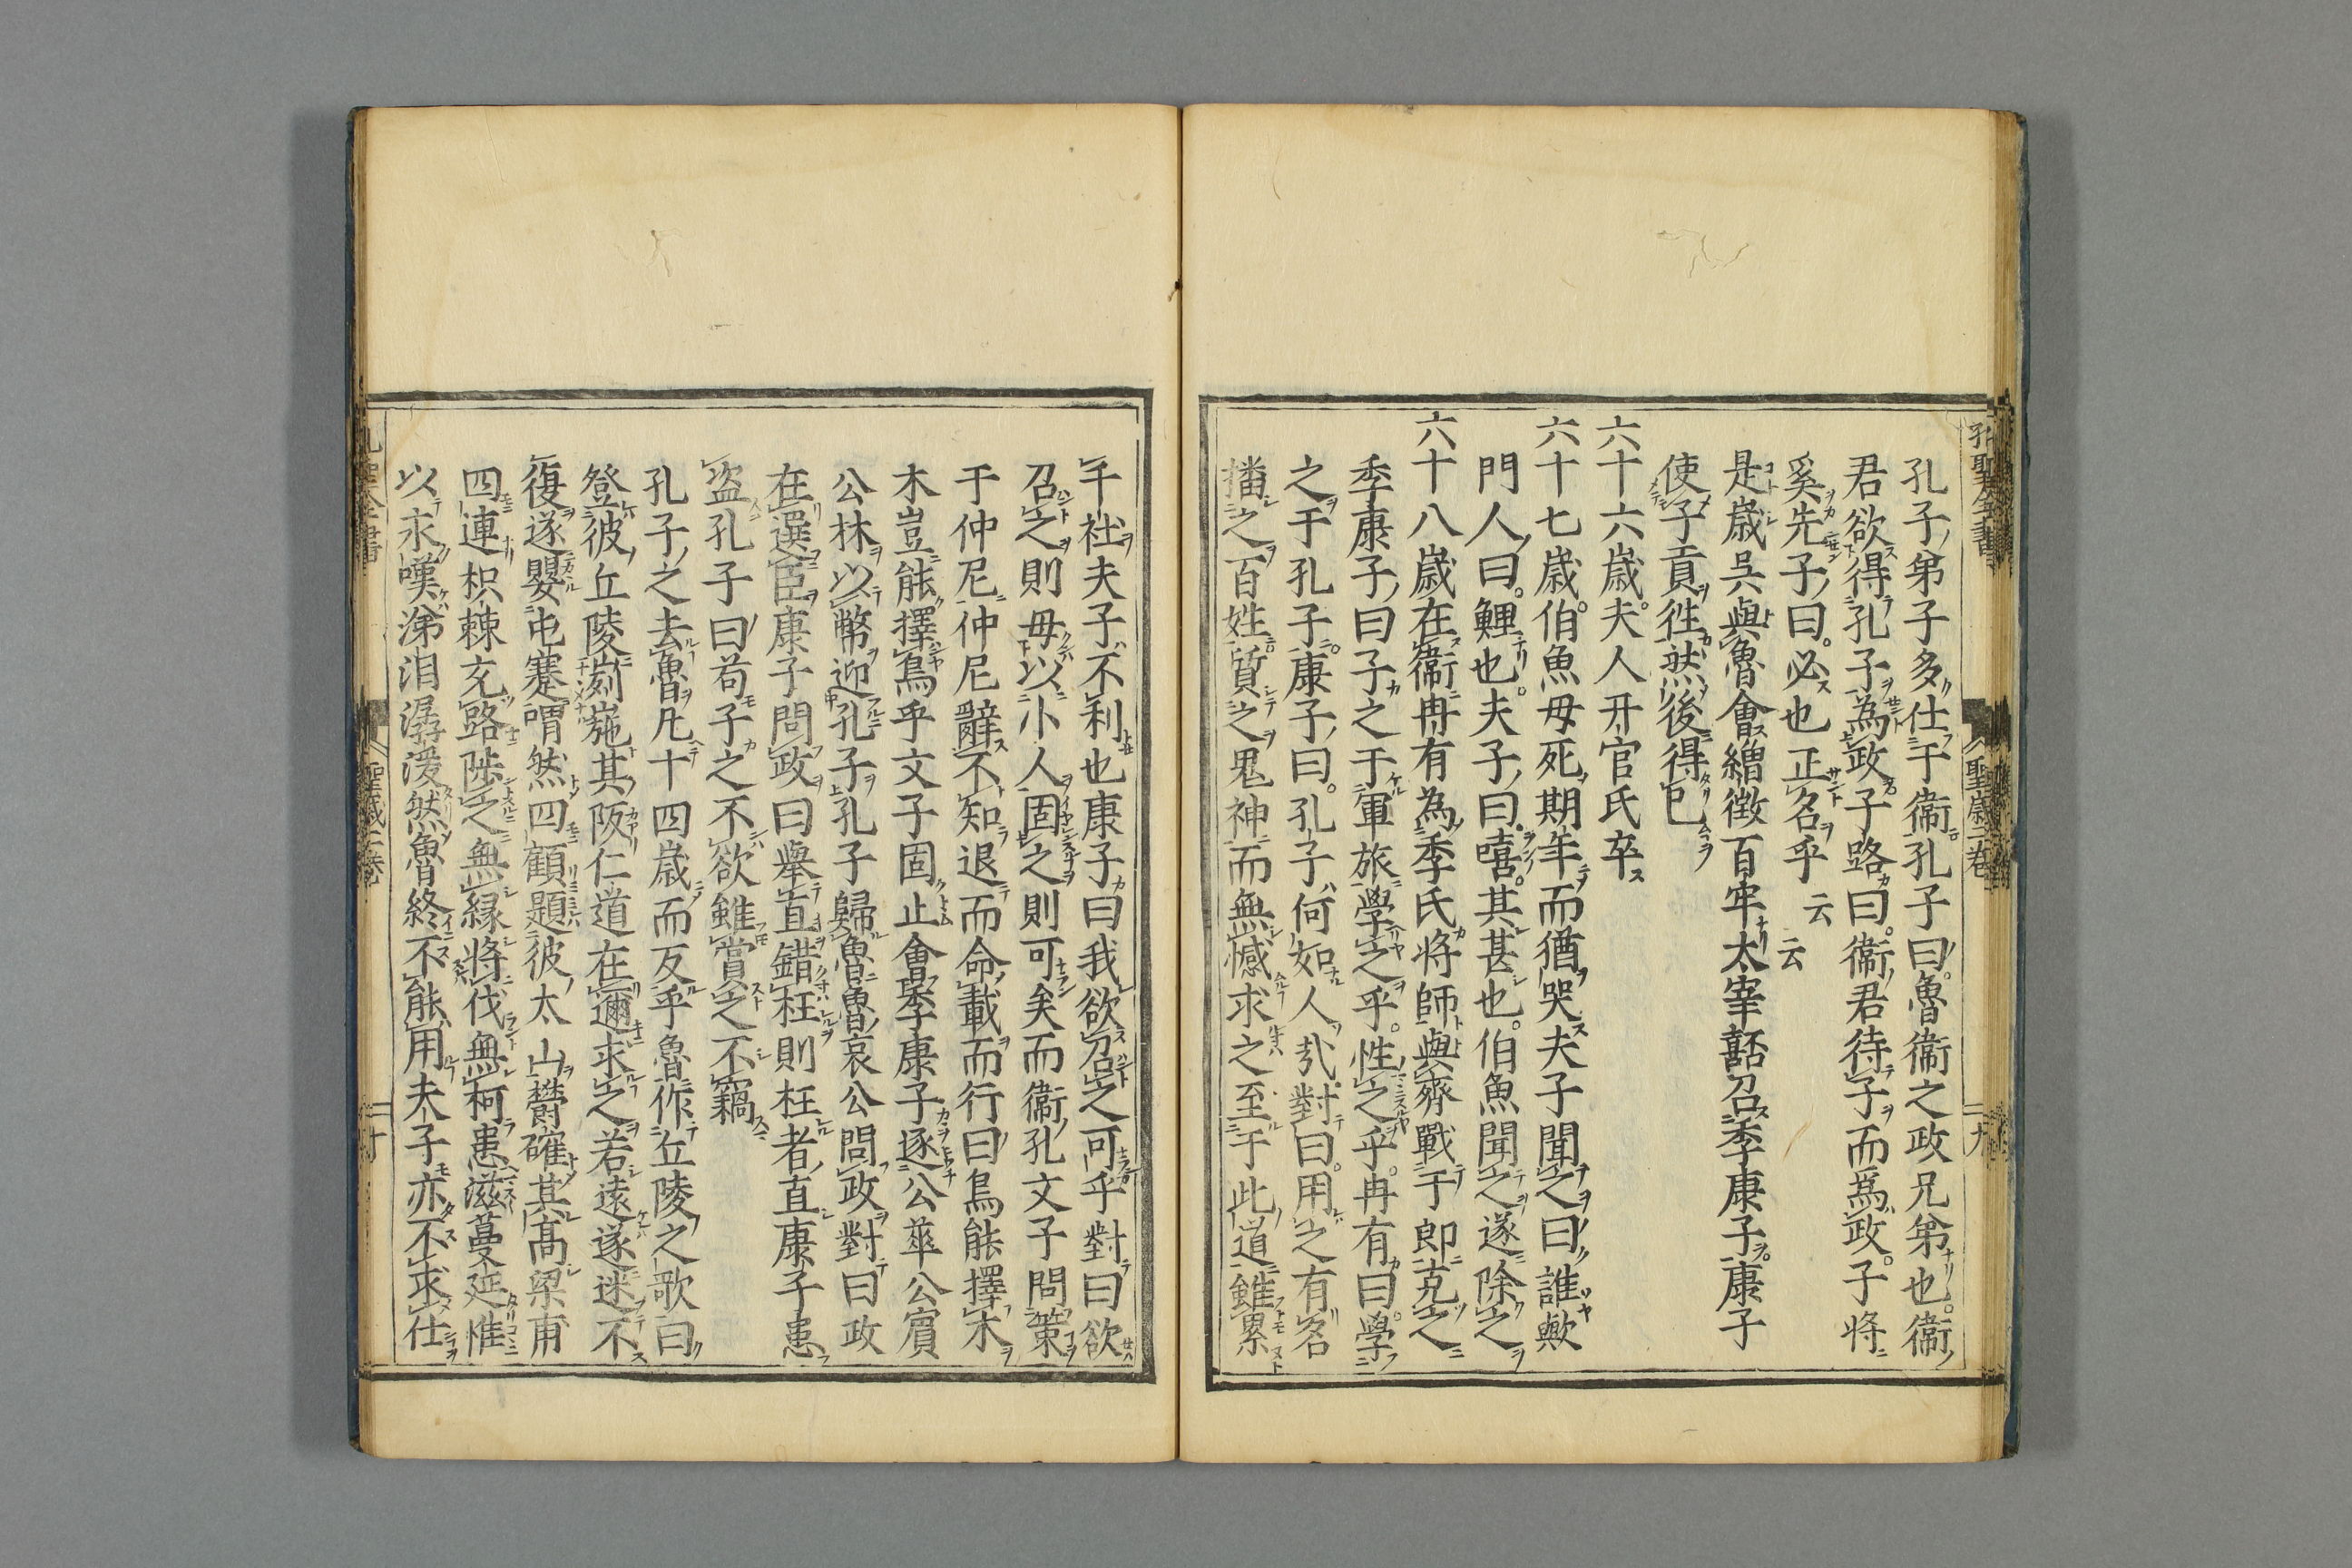 孔子弟子多仕于衛孔子曰魯衛之政兄弟也衛
君欲得孔子為政子路曰衛君待子而爲政子将
奚先子曰必也正名乎云云
是歳吳與魯會繒徴百牢太宰嚭召季康子康子
使子貢徃然後得已
六十六歳夫人幵官氏卒
六十七歳伯魚母死期年而猶哭夫子聞之曰誰歟
門人曰鯉也夫子曰嘻其甚也伯魚聞之遂除之
六十八歳在衛冉有為季氏将師與齊戰于郎克之
季康子曰子之于軍旅學之乎性之乎冉有曰學
之于孔子康子曰孔子何如人㢤對曰用之有名
播之百姓質之鬼神而無憾求之至于此道雖累
千社夫子不利也康子曰我欲召之可乎對曰欲
召之則毋以小人固之則可矣而衛孔文子問策
于仲尼仲尼辭不知退而命載而行曰鳥能擇木
木豈能擇鳥乎文子固止會季康子逐公華公賓
公林以幣迎孔子孔子歸魯魯哀公問政對曰政
在選臣康子問政曰舉直錯枉則枉者直康子患
盗孔子曰苟子之不欲雖賞之不竊
孔子之去魯凡十四歳而反乎魯作丘陵之歌曰
登彼丘陵峛崺其阪仁道在邇求之若遠遂迷不
復遂嬰屯蹇喟然四顧題彼太山欝確其髙梁甫
四連枳棘充路陟之無縁將伐無柯患滋蔓延惟
以永嘆涕泪潺湲然魯終不能用夫子亦不求仕
孔聖全書
聖歳二巻